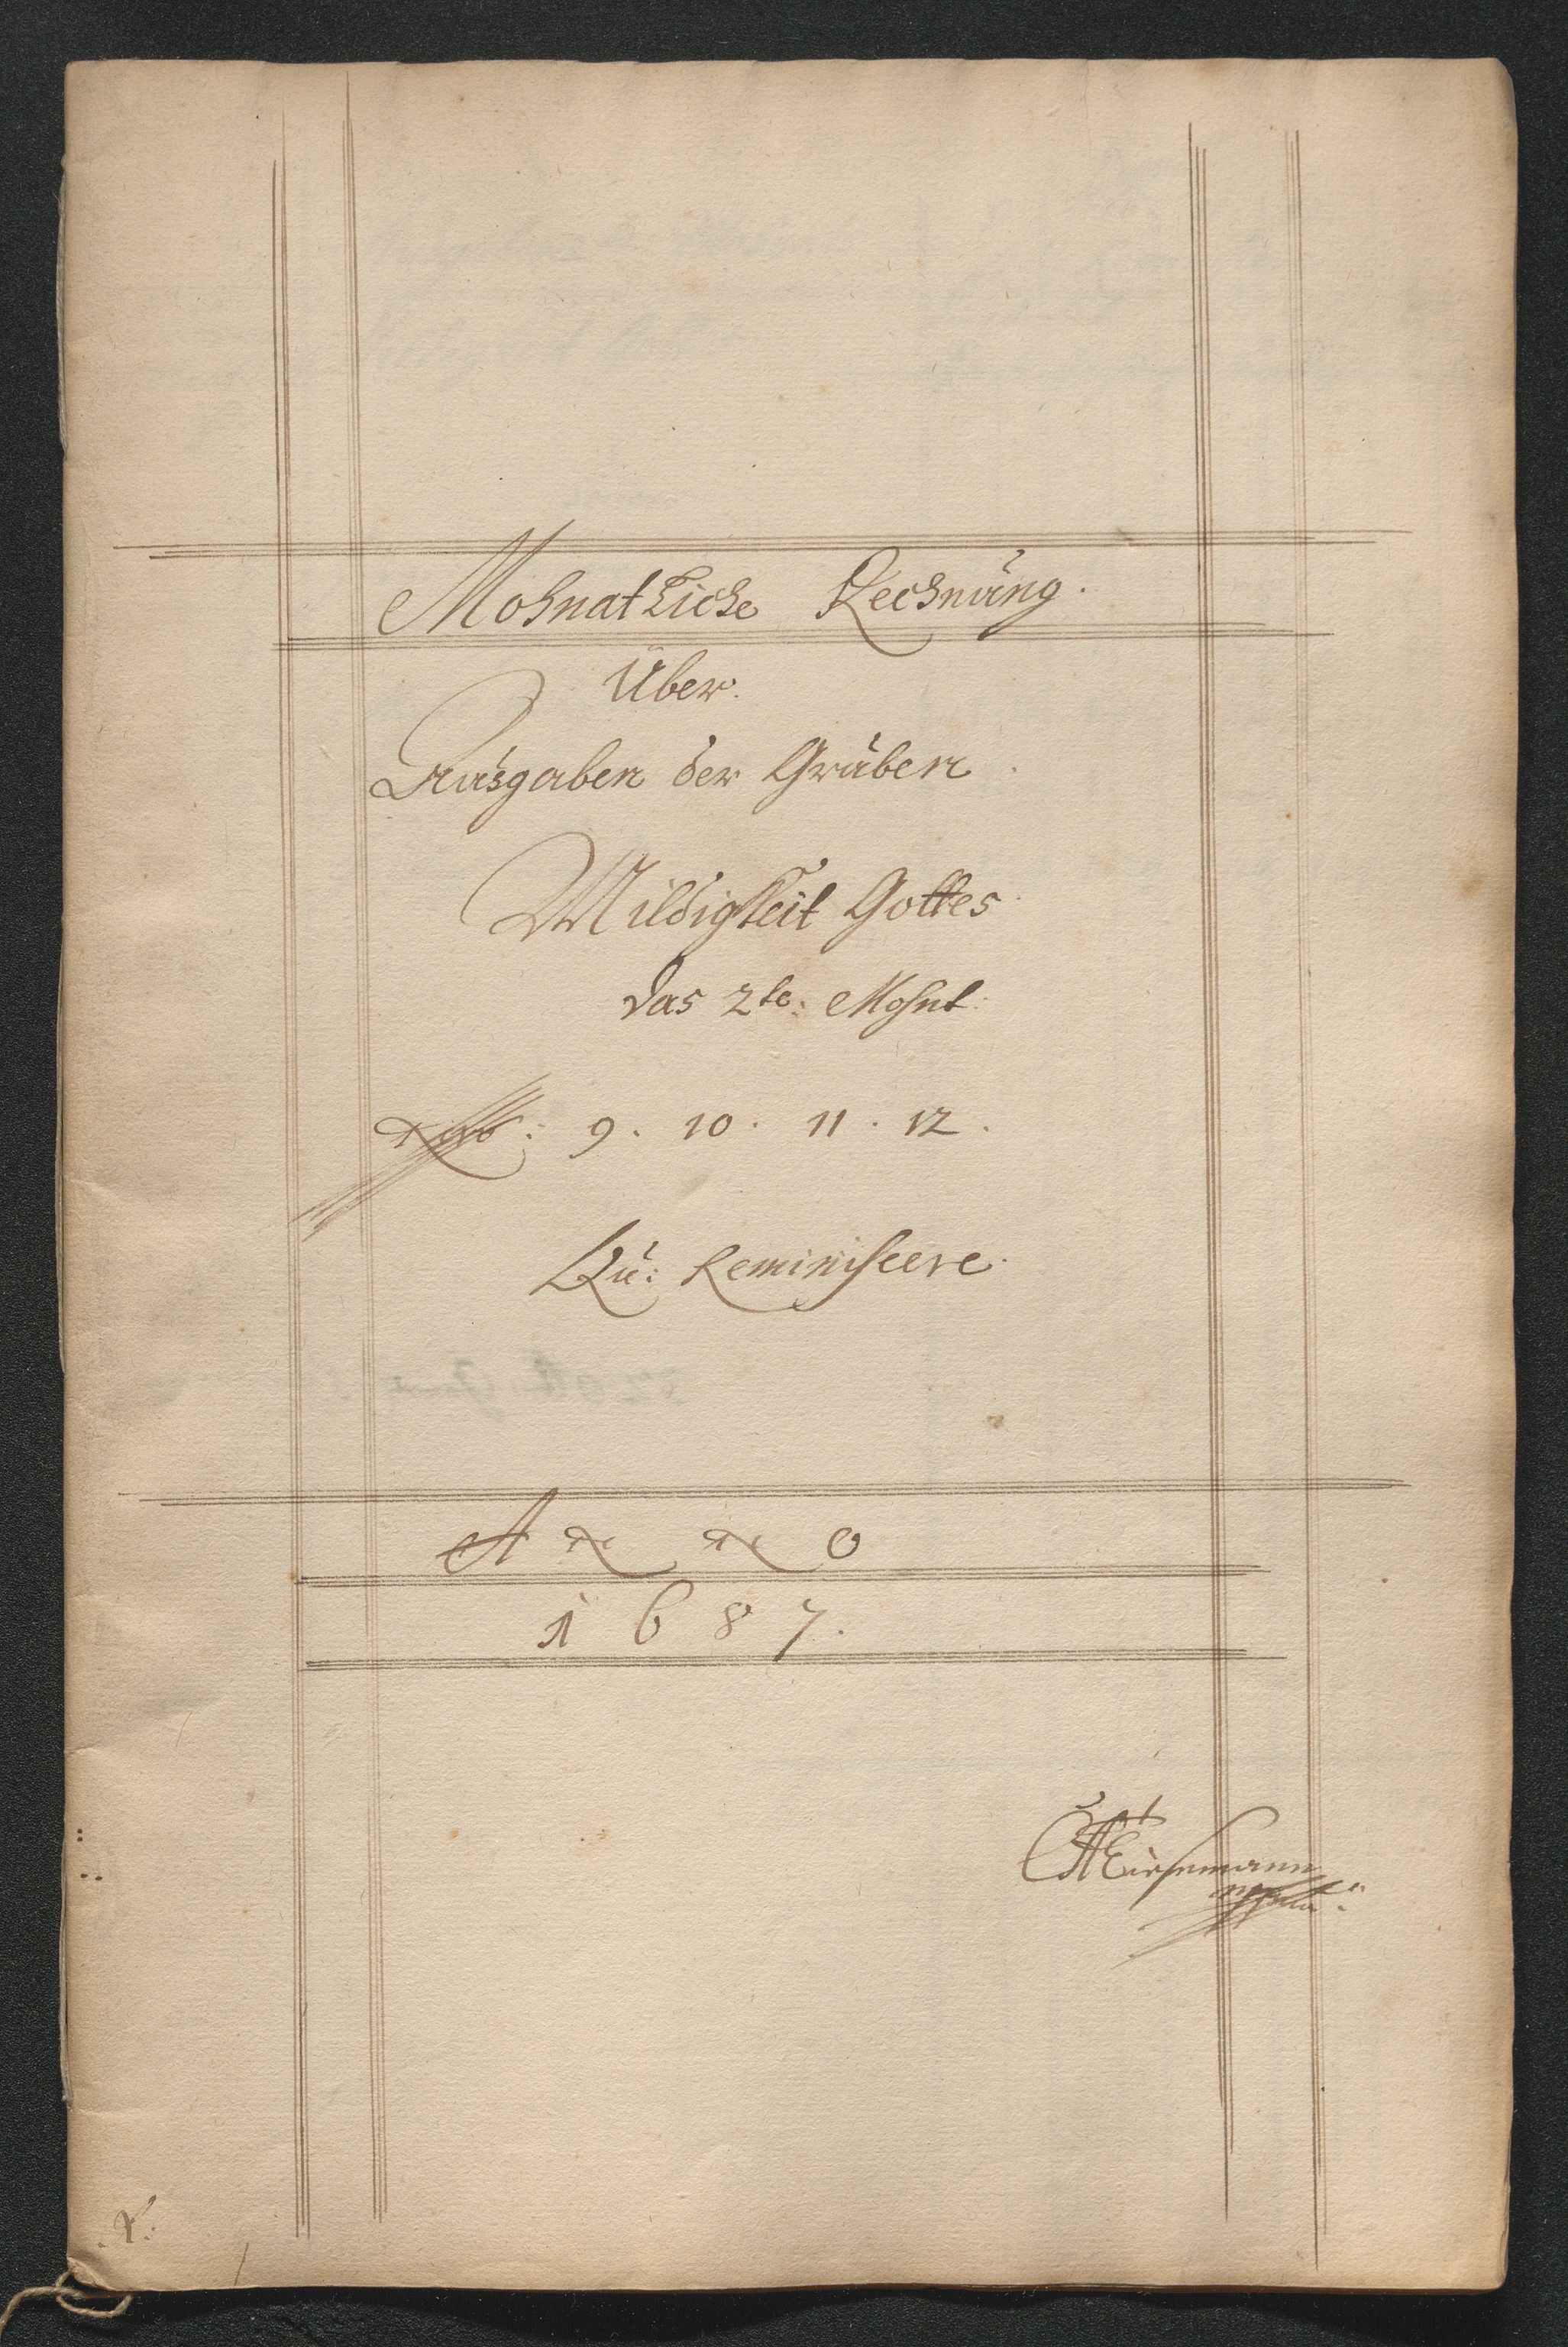 Mohnatliche Rechnüng.
Über.
Aüsgaben der Grüben.
Mildigkeit Gottes
Das 2te: Mohnt:
9. 10. 11. 12.
Qü: Reminiscere.
Anno
1687.